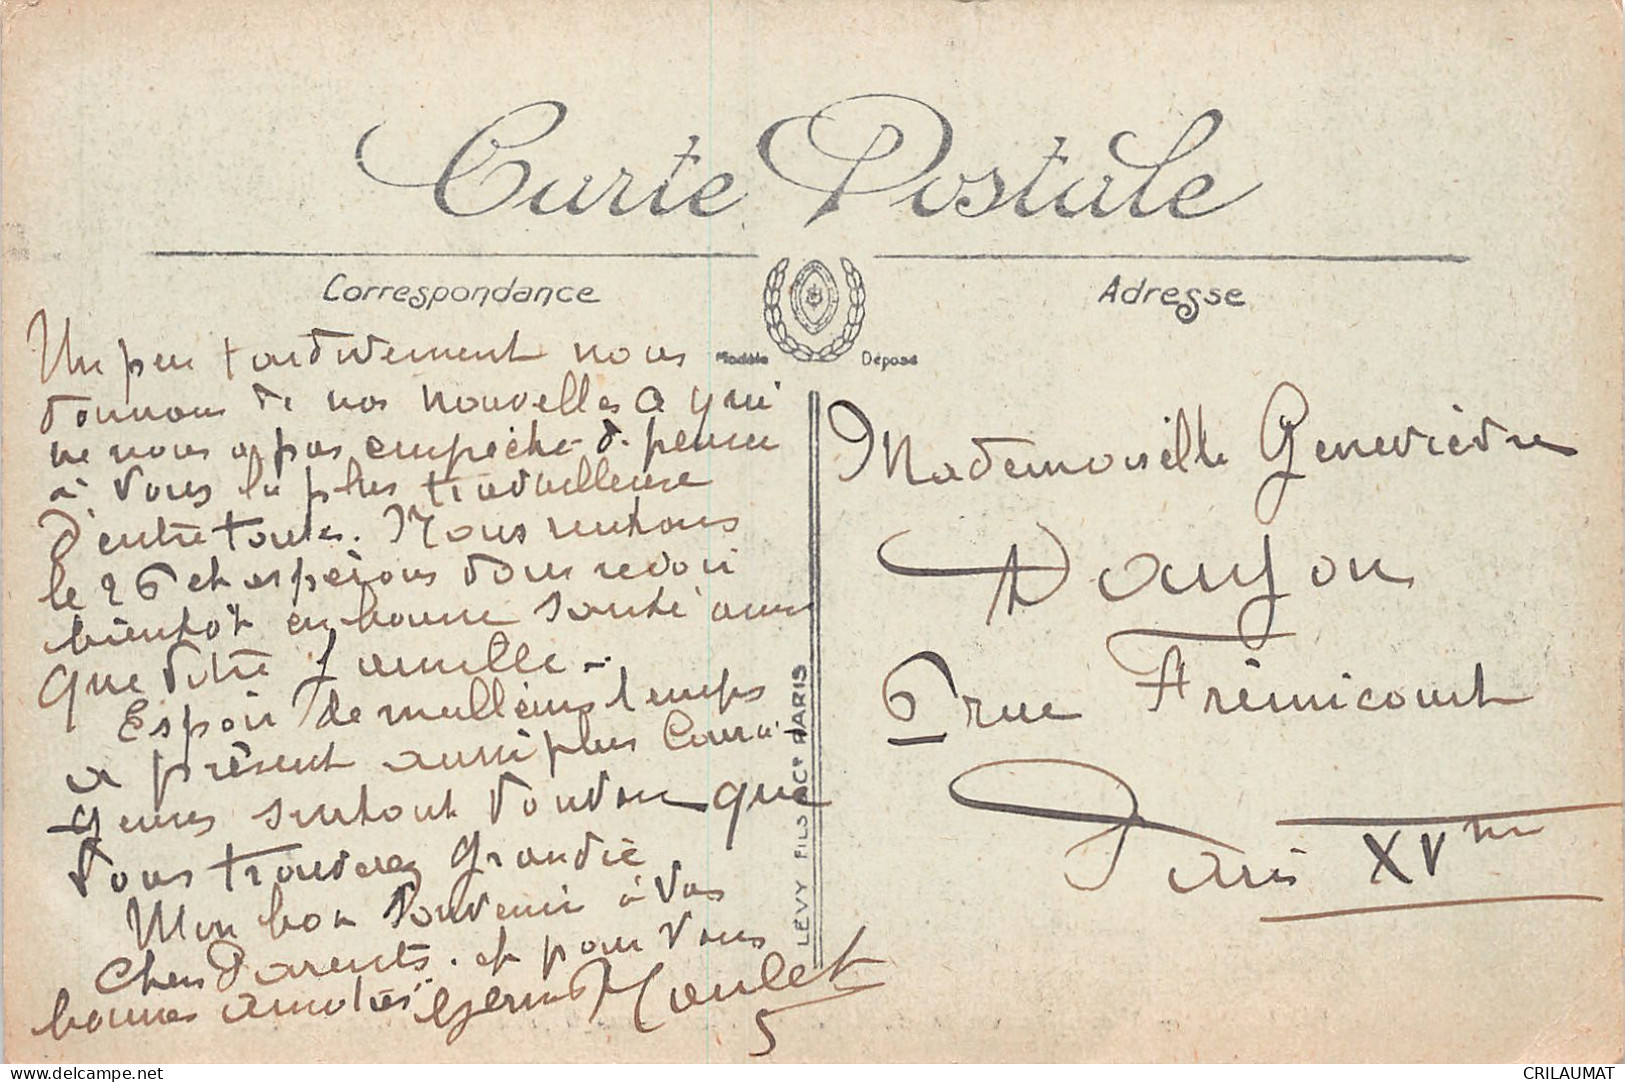 Carte Postale
Correspondance
Adresse
Modèle Déposé
Un peu tardivement nous
donnons de nos nouvelles a qui
ne nous a pas empêché de penser
à vous la plus travailleuse
d'entre toutes. Nous rentrons
le 26 et espérons vous revoir
bientôt en bonne santé ainsi
que votre famille -
Espoir de meilleurs temps
a présent aussi plus
surtout que
vous trouverez grandie
Mon bon souvenir à vos
Chers Parents. et pour vous
bonnes amitiés Germ Moulet
Mademoiselle Geneviève
Donjon
6 rue Frémicourt
Paris XVme
LEVY FILS & Cie PARIS
delcampe.net
CRILAUMAT